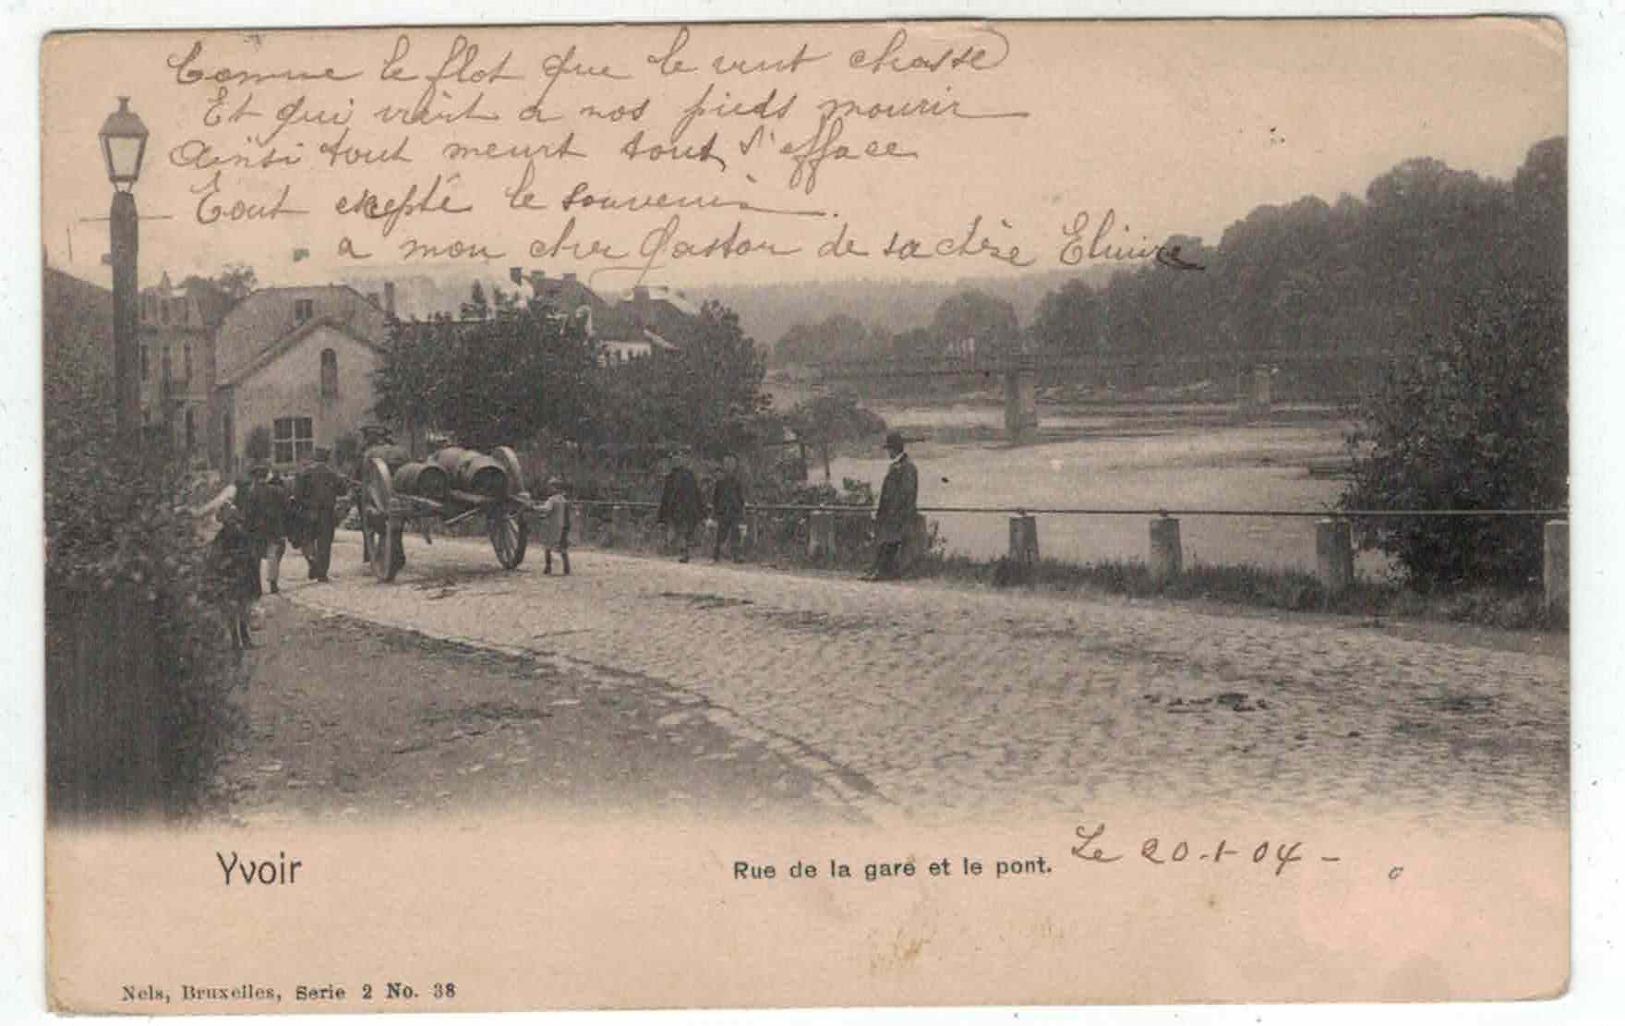 Comme le flot que le vent chasse
Et qui vient a nos pieds mourir
Ainsi tout meurt tout s'efface
Tout exepté le souvenir.
a mon cher Gaston de sa chère
Yvoir
Rue de la gare et le pont.
Le 20-1-04-
Nels, Bruxelles, Serie 2 No. 38